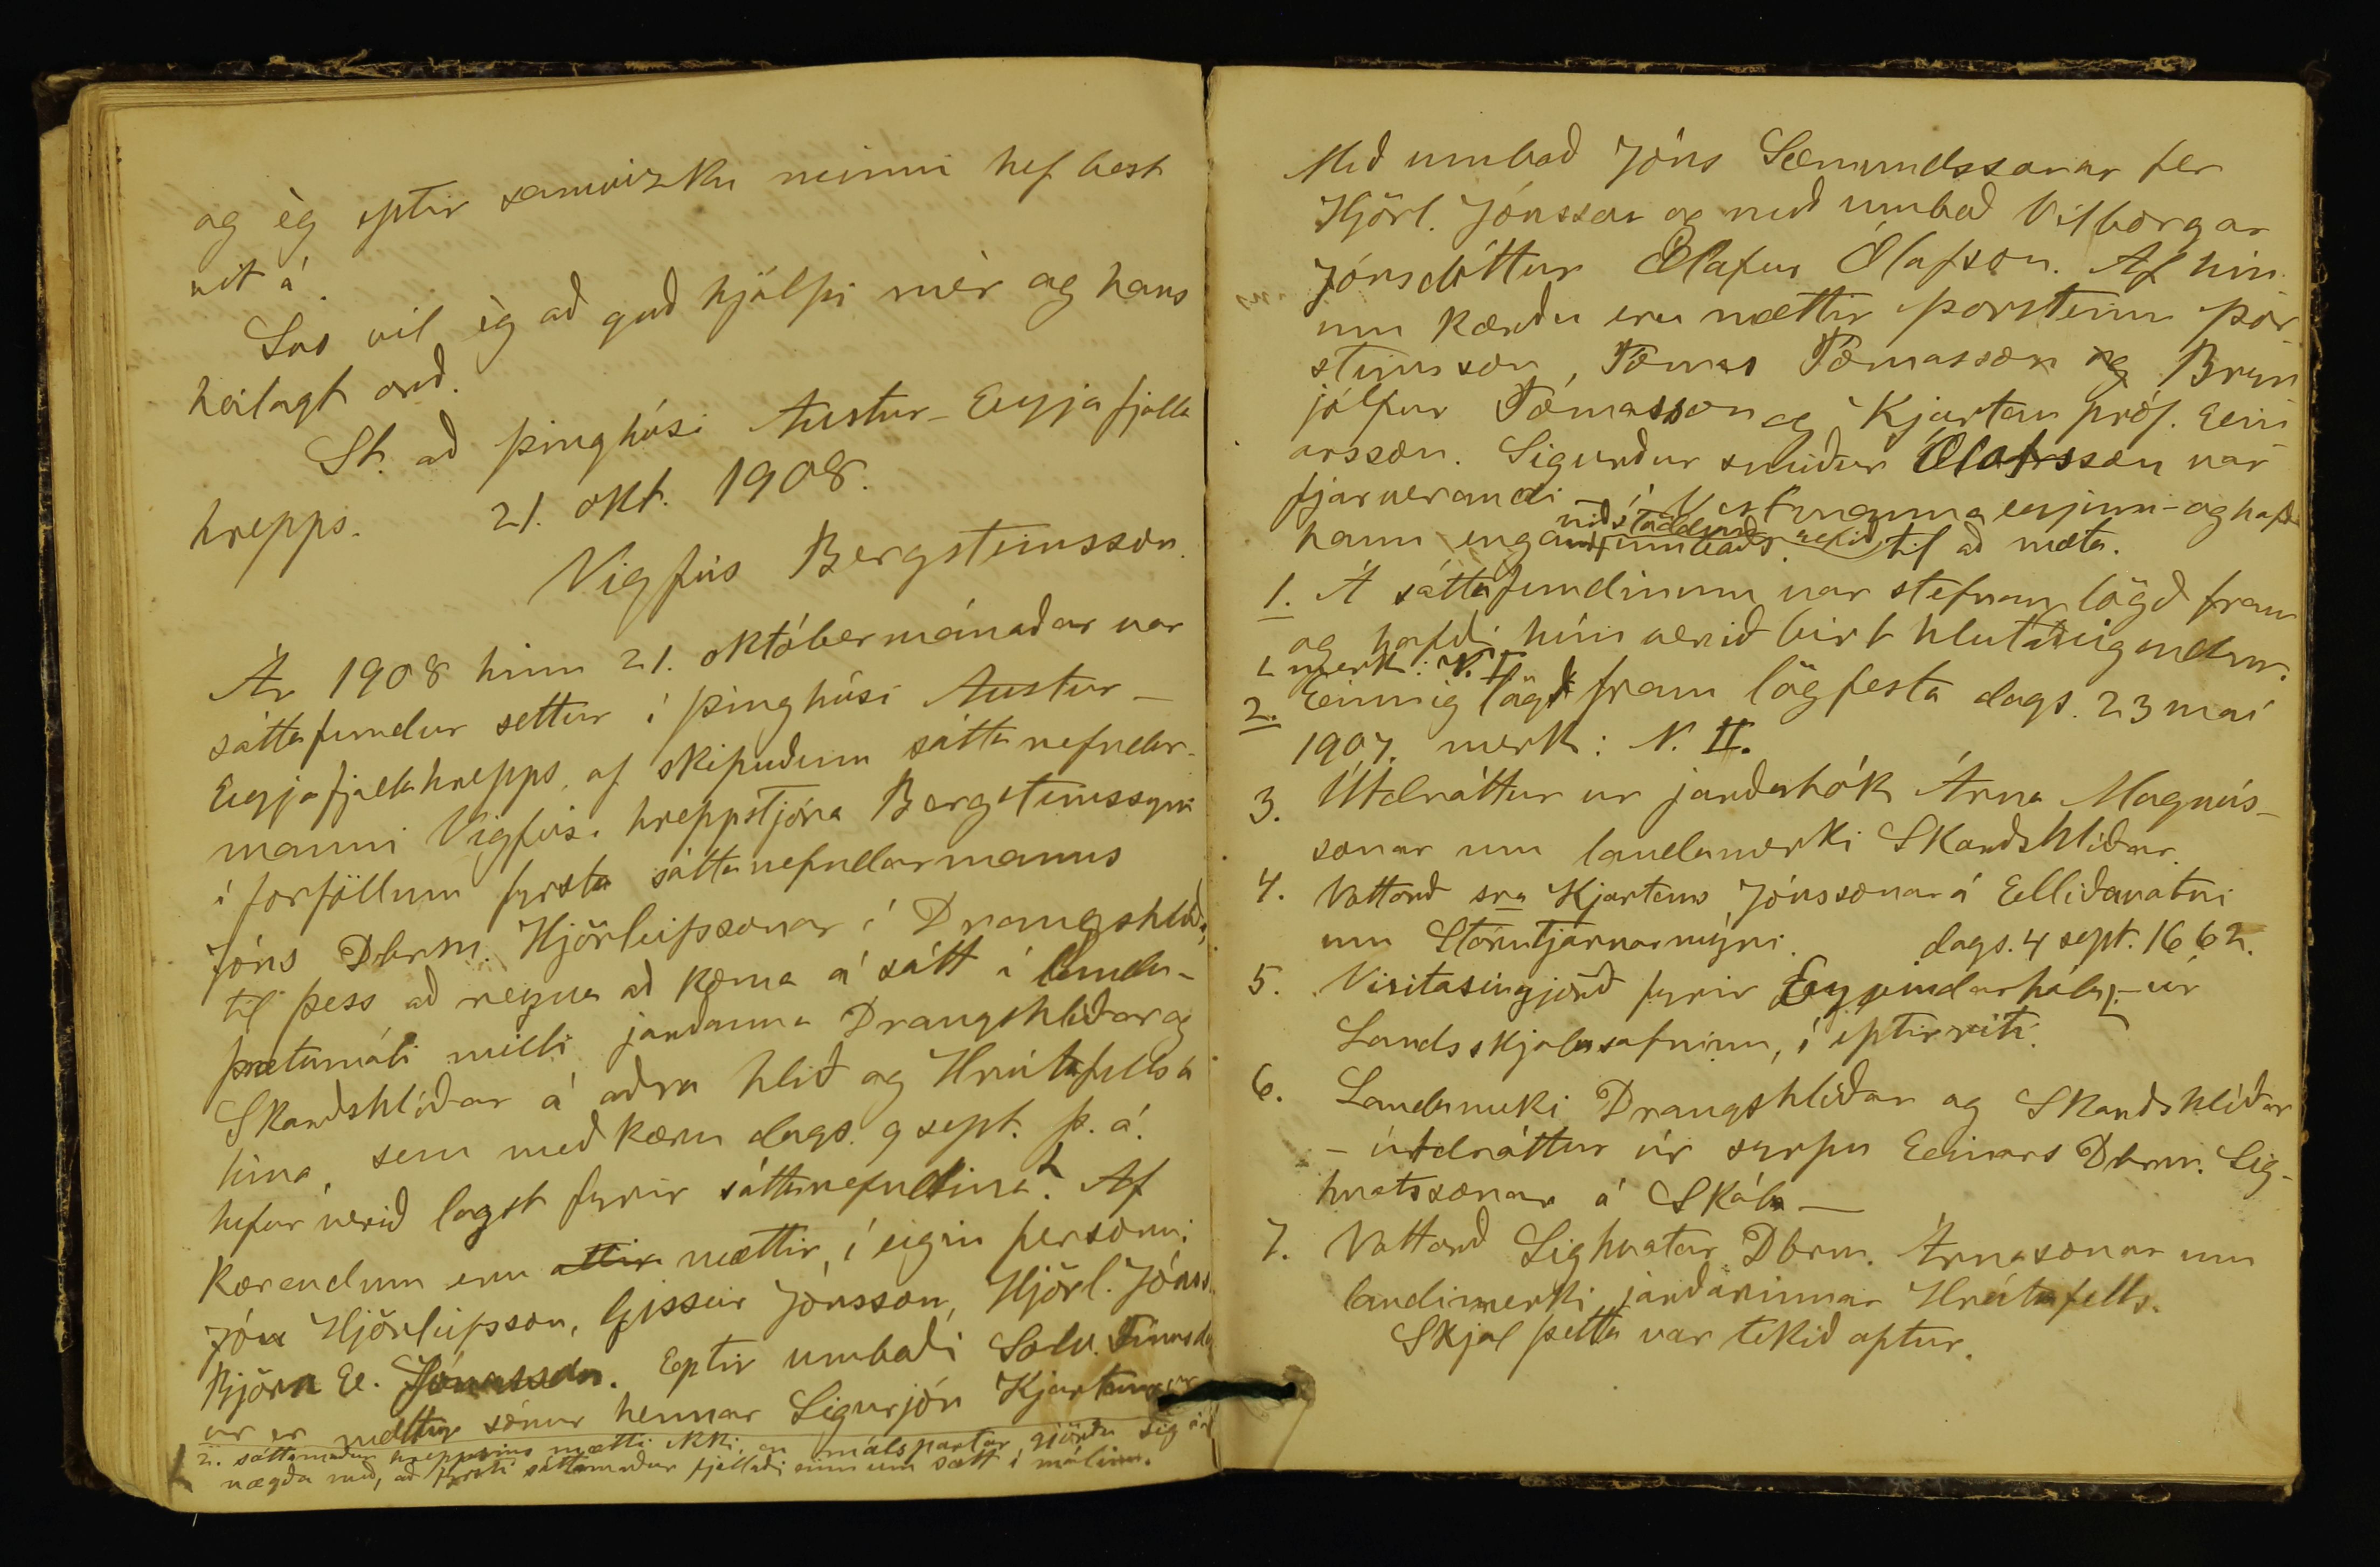 og èg eptir samvizku minni hef best
vit á.
Svo vil èg að guð hjálpi mèr og hans
heilagt orð.
St. að þinghúsi Austur-Eyjafjalla
hrepps. 21. okt. 1908.
Vigfús Bergsteinsson.
Ár 1908 hinn 21. október mánaðar var
sáttafundur settur í þinghúsi Austur-
Eyjafjallahrepps, af skipuðum sáttanefndar-
manni Vigfús. hreppstjóra Bergsteinssyni
í forföllum fyrsta sáttanefndarmanns
Jóns Dbrm. Hjörleifssonar í Drangshlíð,
til þess að reyna að koma á sátt í landa-
þrætumáli milli jarðanna Drangshlíðar og
Skarðshlíðar á aðra hlið og Hrútafells á
hina, sem með kæru dags. 9 sept. þ. á.
hefur verið lagst fyrir sáttanefndina. Af
kærendum eru mættir, í eigin persónu:
Jón Hjörleifsson, Gissur Jónsson, Hjörl. Jónss.
Björn E. Jónasson. Eptir umboði
ur er mættur sonur hennar Sigurjón Kjartansson
2. sáttamaður hreppsins mætti ekki, en málspartar gjörðu sig á-
nægða með, að fyrsti sáttamaður fjallaði einn um sátt í málinu.
Með umboð Jóns Sæmundssonar fer
Hjörl. Jónsson og með umboð Vilborgar
Jónsdóttur Ólafur Ólafsson. Af hin-
um kærðu eru mættir Þorsteinn Þor
steinsson, Tómas Tómasson og Bryn
jólfur Tómasson og Kjartan próf. Ein
arsson. Sigurður smiður Ólafsson var
fjarverandi - í Vestmannaeyjum - og hafði
viðstöddum
hann engan umboðs til að mæta.
1. Á sáttafundinum var stefnan lögð fram
og hafði hún verið birt hlutaðeigendum.
merk: N. I
2. Einnig lögð fram lögfesta dags. 23 maí
1907. merk: N. II.
3. Útdráttur ur jarðabók Árna Magnús-
sonar um landamerki Skarðshlíðar.
4. Vottorð sra Kjartans Jónssonar á Elliðavatni
um Stórutjarnarmýri. dags. 4 sept. 1662.
5. Visitasiugjörð fyrir Eyvindarhóla, - úr
Landsskjalasafninu, í eptirriti.
6. Landamerki Drangshlíðar og Skarðshlíðar
- útdráttur úr syrpu Einars Dbrm. Sig-
hvatssonar á Skála -
7. Vottorð Sighvatar Dbrm. Árnasonar um
landimerki jarðarinnar Hrútafells.
Skjal þetta var tekið aptur.